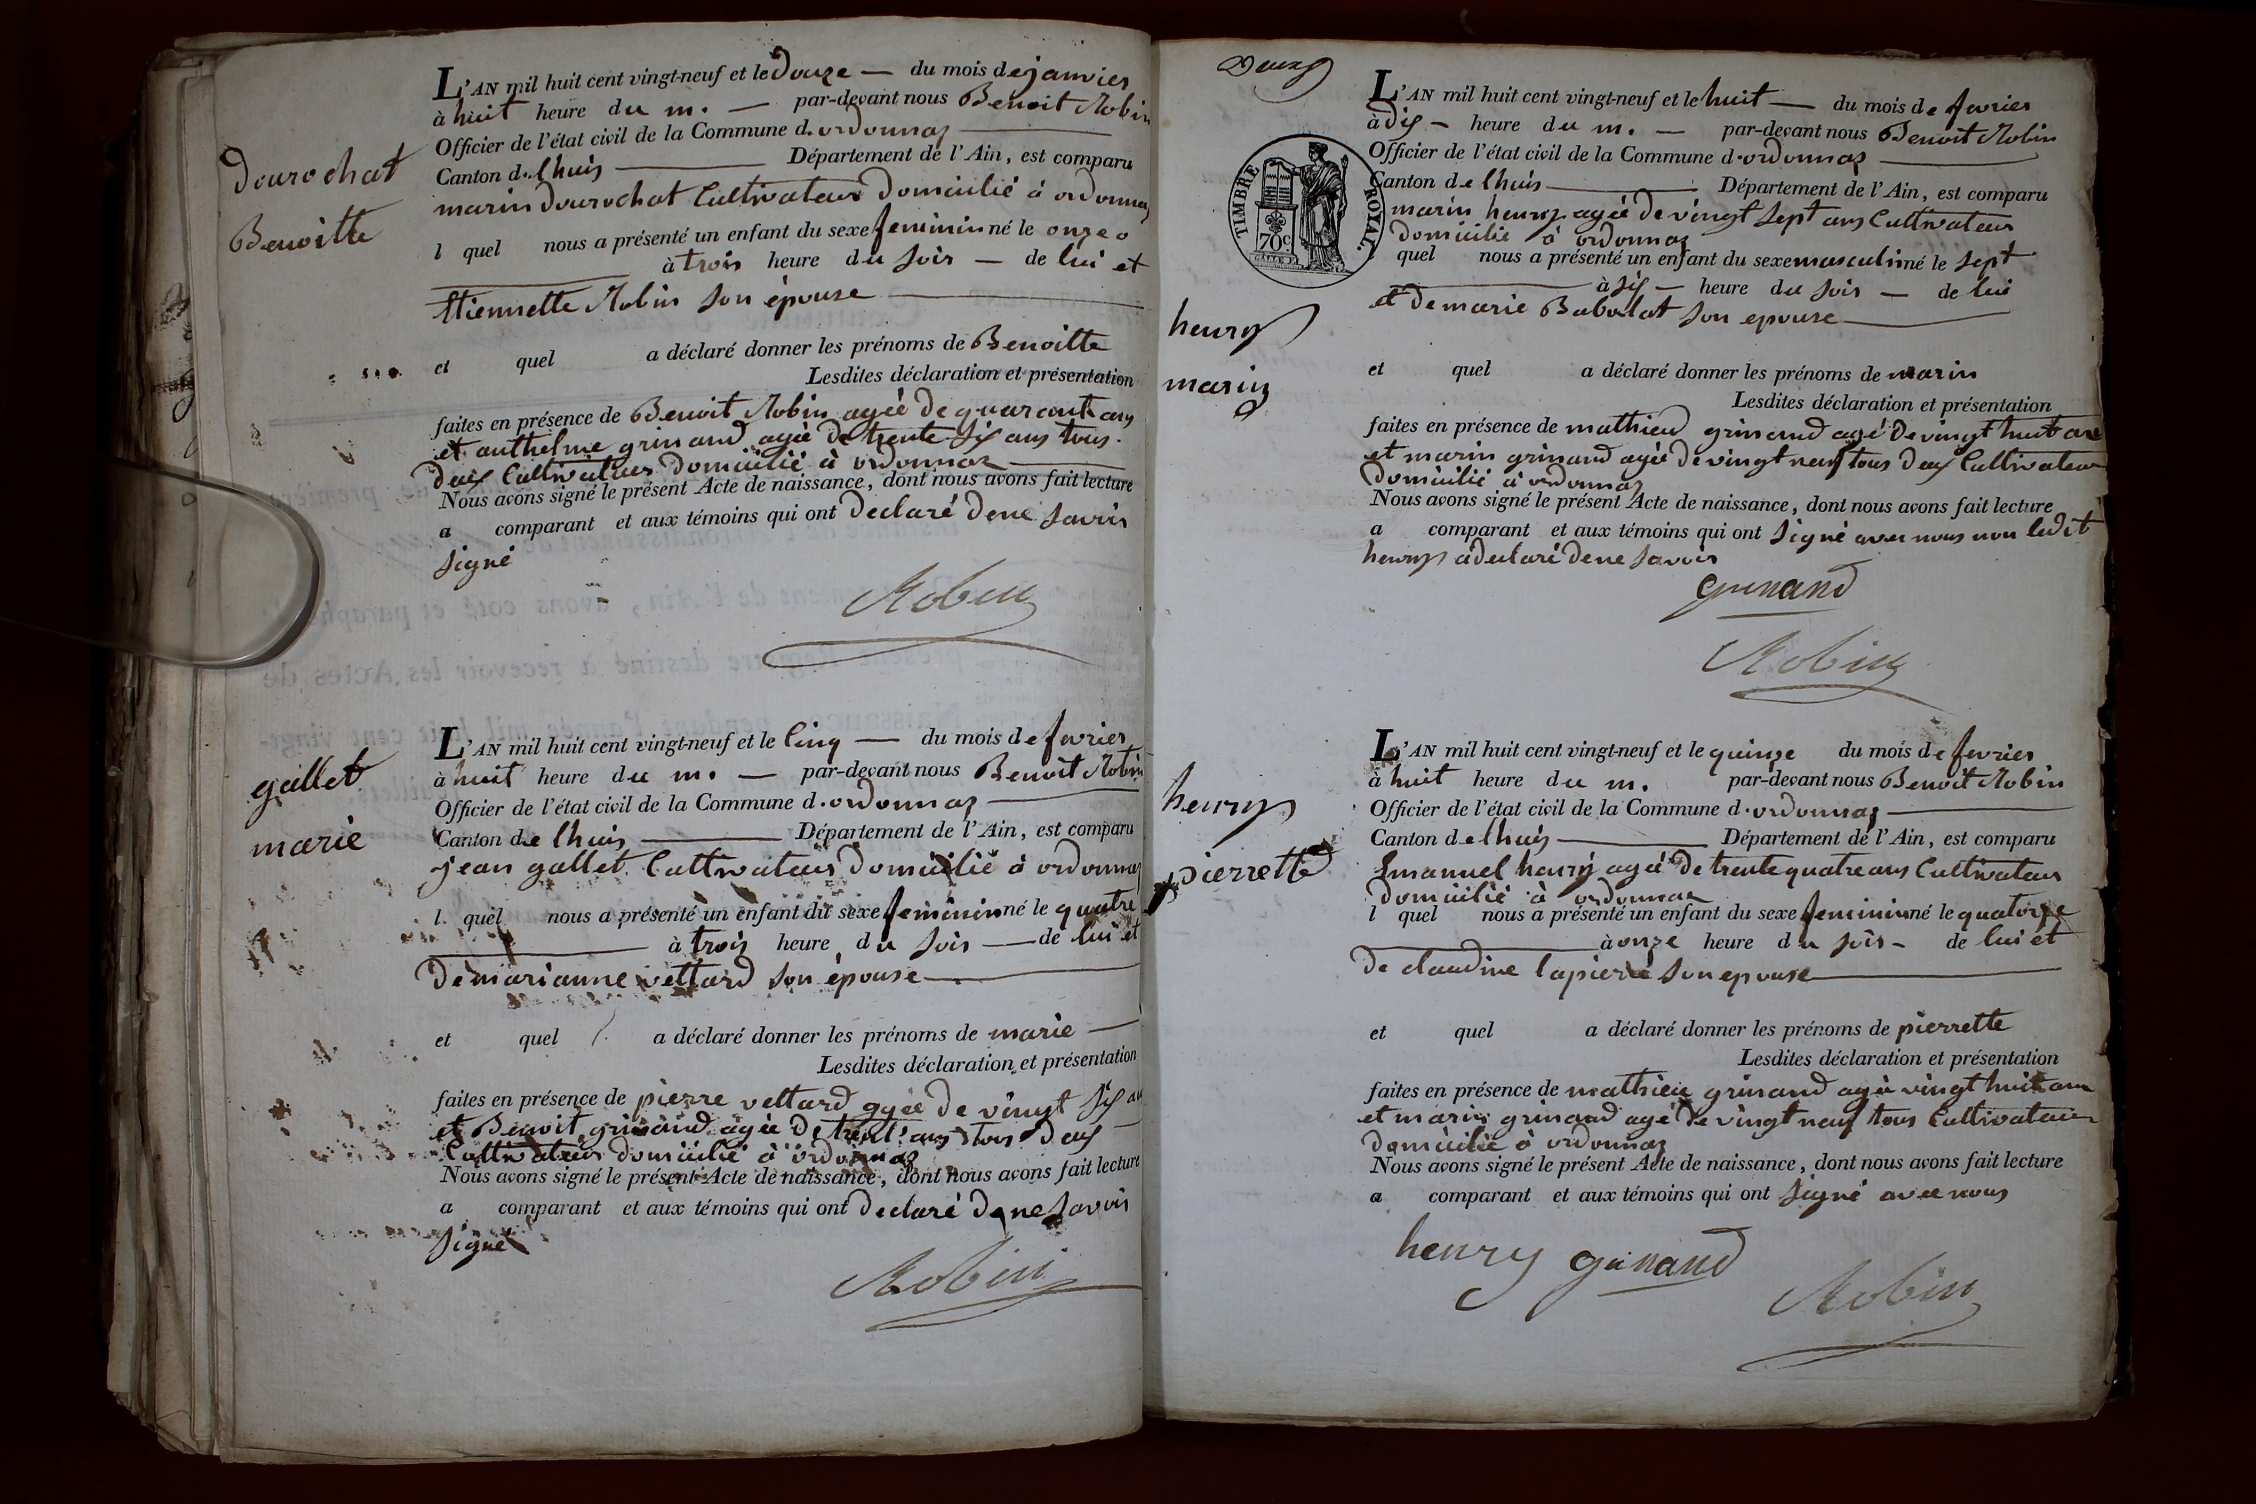 Dourochat
Benoitte
L'AN mil huit cent vingt-neuf et le Douze — du mois de janvier
à huit heure du m. — par-devant nous Benoit Robin
Officier de l'état civil de la Commune d. ordonnaz
Canton d. lhuis — Département de l'Ain, est comparu
marin Dourochat Cultivateur Domicilié à ordonnaz
l quel nous a présenté un enfant du sexe feminin né le onze
à trois heure du soir — de lui et
Etiennette Robin son épouse
et quel a déclaré donner les prénoms de Benoitte
Lesdites déclaration et présentation
faites en présence de Benoit Robin agée de quarant ans
et anthelme grinand agée De trente six ans tous
Deux Cultivateur Domicilié à ordonnaz
Nous avons signé le présent Acte de naissance, dont nous avons fait lecture
a comparant et aux témoins qui ont Declaré Dene savoir
signé
Robin
gallet
marie
L'AN mil huit cent vingt-neuf et le Cinq — du mois de fevrier
à huit heure du m. — par-devant nous Benoit Robin
Officier de l'état civil de la Commune d. ordonnaz
Canton de lhuis — Département de l'Ain, est comparu
jean gallet Cultivateur Domicilié à ordonnaz
l. quel nous a présenté un enfant du sexe feminin né le quatre
à trois heure du soir — de lui et
De marianne vettard son épouse
et quel a déclaré donner les prénoms de marie —
Lesdites déclaration et présentation
faites en présence de pierre vettard agée de vingt six an
et Benoit grinand agée De trent ans tous Deux
Cultivateur domicilié à ordonnaz
Nous avons signé le présent Acte de naissance, dont nous avons fait lecture
a comparant et aux témoins qui ont Declaré De ne savoir
signé
Robin
Deux
TIMBRE ROYAL.
70c
henry
marin
L'AN mil huit cent vingt-neuf et le huit — du mois de fevrier
à Dix — heure du m. — par-devant nous Benoit Robin
Officier de l'état civil de la Commune d. ordonnaz
Canton de lhuis — Département de l'Ain, est comparu
marin henry agée De vingt sept ans Cultivateur
domicilié à ordonnaz
quel nous a présenté un enfant du sexe masculin né le sept
à six — heure du soir — de lui
et De marie Babolat son epouse
et quel a déclaré donner les prénoms de marin
Lesdites déclaration et présentation
faites en présence de mathieu grinand agé De vingt huit ans
et marin grinand agée De vingt neuf tous Deux Cultivateur
Domicilié à ordonnaz
Nous avons signé le présent Acte de naissance, dont nous avons fait lecture
a comparant et aux témoins qui ont signé avec nous non ledit
henry a declaré Dene savoir
grinand
Robin
henry
pierrette
L'AN mil huit cent vingt-neuf et le quinze du mois de fevrier
à huit heure du m. par-devant nous Benoit Robin
Officier de l'état civil de la Commune d. ordonnaz
Canton de lhuis — Département de l'Ain, est comparu
Emanuel henry agée De trente quatre ans Cultivateur
Domicilié à ordonnaz
l quel nous a présenté un enfant du sexe feminin né le quatorze
à onze heure du soir — de lui et
De claudine lapierre son epouse
et quel a déclaré donner les prénoms de pierrette
Lesdites déclaration et présentation
faites en présence de mathieu grinand agée vingt huit ans
et marin grinand agé De vingt neuf tous Cultivateur
domicilié à ordonnaz
Nous avons signé le présent Acte de naissance, dont nous avons fait lecture
a comparant et aux témoins qui ont signé avec nous
henry grinand
Robin